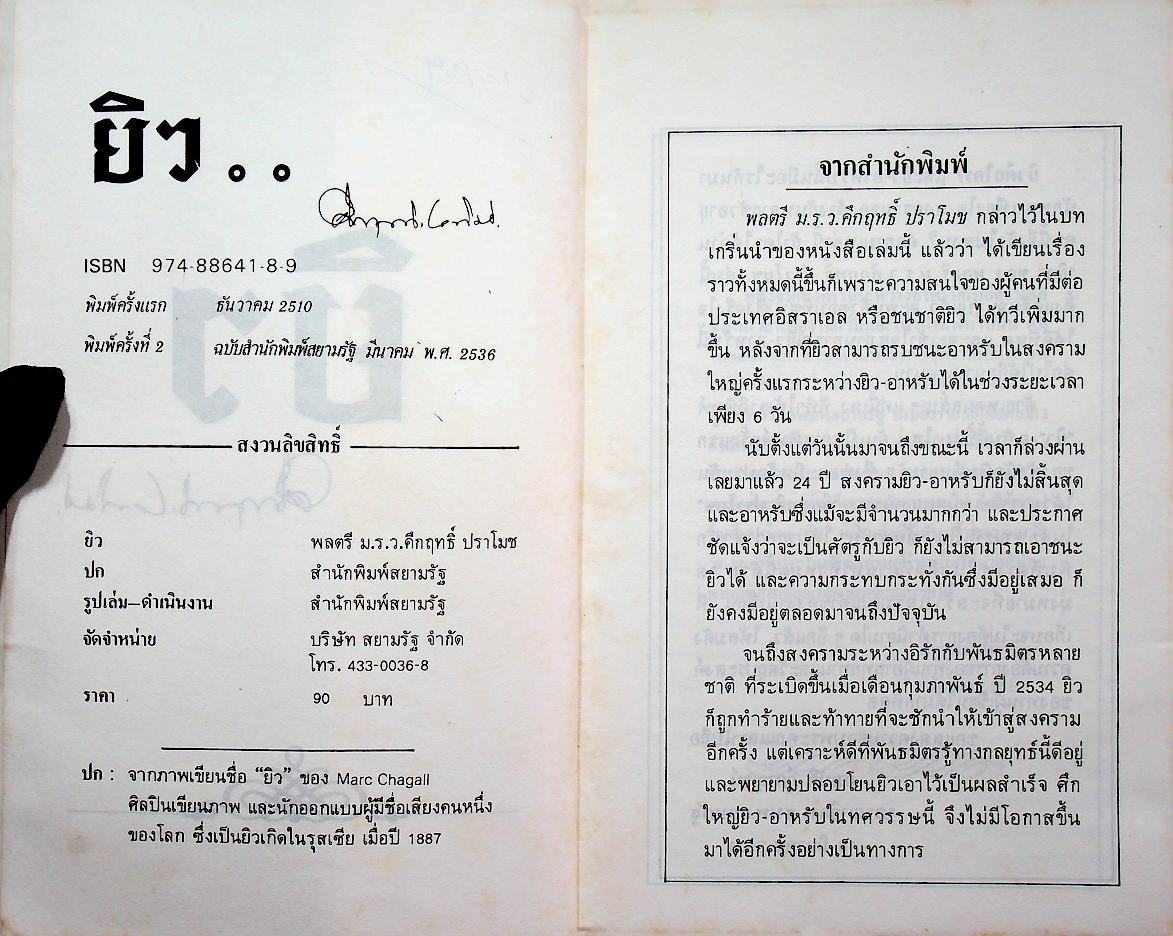 ยิว..
ISBN 974-88641-8-9
พิมพ์ครั้งแรก ธันวาคม 2510
พิมพ์ครั้งที่ 2 ฉบับสำนักพิมพ์สยามรัฐ มีนาคม พ.ศ. 2536
สงวนลิขสิทธิ์
ยิว พลตรี ม.ร.ว.คึกฤทธิ์ ปราโมช
ปก สำนักพิมพ์สยามรัฐ
รูปเล่ม–ดำเนินงาน สำนักพิมพ์สยามรัฐ
จัดจำหน่าย บริษัท สยามรัฐ จำกัด
โทร. 433-0036-8
ราคา 90 บาท
ปก : จากภาพเขียนชื่อ “ยิว” ของ Marc Chagall
ศิลปินเขียนภาพ และนักออกแบบผู้มีชื่อเสียงคนหนึ่ง
ของโลก ซึ่งเป็นยิวเกิดในรุสเซีย เมื่อปี 1887
จากสำนักพิมพ์
พลตรี ม.ร.ว.คึกฤทธิ์ ปราโมช กล่าวไว้ในบท
เกริ่นนำของหนังสือเล่มนี้ แล้วว่า ได้เขียนเรื่อง
ราวทั้งหมดนี้ขึ้นก็เพราะความสนใจของผู้คนที่มีต่อ
ประเทศอิสราเอล หรือชนชาติยิว ได้ทวีเพิ่มมาก
ขึ้น หลังจากที่ยิวสามารถรบชนะอาหรับในสงคราม
ใหญ่ครั้งแรกระหว่างยิว-อาหรับได้ในช่วงระยะเวลา
เพียง 6 วัน
นับตั้งแต่วันนั้นมาจนถึงขณะนี้ เวลาก็ล่วงผ่าน
เลยมาแล้ว 24 ปี สงครามยิว-อาหรับก็ยังไม่สิ้นสุด
และอาหรับซึ่งแม้จะมีจำนวนมากกว่า และประกาศ
ชัดแจ้งว่าจะเป็นศัตรูกับยิว ก็ยังไม่สามารถเอาชนะ
ยิวได้ และความกระทบกระทั่งกันซึ่งมีอยู่เสมอ ก็
ยังคงมีอยู่ตลอดมาจนถึงปัจจุบัน
จนถึงสงครามระหว่างอิรักกับพันธมิตรหลาย
ชาติ ที่ระเบิดขึ้นเมื่อเดือนกุมภาพันธ์ ปี 2534 ยิว
ก็ถูกทำร้ายและท้าทายที่จะชักนำให้เข้าสู่สงคราม
อีกครั้ง แต่เคราะห์ดีที่พันธมิตรรู้ทางกลยุทธ์นี้ดีอยู่
และพยายามปลอบโยนยิวเอาไว้เป็นผลสำเร็จ ศึก
ใหญ่ยิว-อาหรับในทศวรรษนี้ จึงไม่มีโอกาสขึ้น
มาได้อีกครั้งอย่างเป็นทางการ